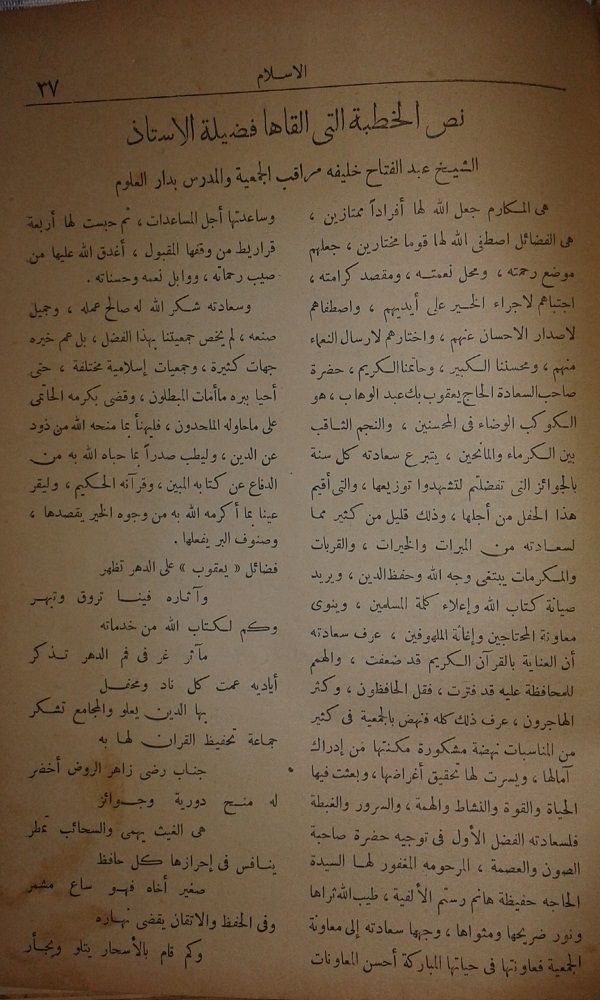 الاسلام
٣٧
نص الخطبة التى القاها فضيلة الاستاذ
الشيخ عبد الفتاح خليفه مراقب الجمعية والمدرس بدار العلوم
هى المكارم جعل الله لها أفراداً ممتازين ،
هى الفضائل اصطفى الله لها قوما مختارين ، جعلهم
موضع رحمته ، ومحل نعمته ، ومقصد كرامته ،
اجتباهم لاجراء الخير على أيديهم ، واصطفاهم
لاصدار الاحسان عنهم ، واختارهم لارسال النعماء
منهم ، ومحسننا الكبير ، وحاتمنا الكريم ، حضرة
صاحب السعادة الحاج يعقوب بك عبد الوهاب ، هو
الكوكب الوضاء فى المحسنين ، والنجم الثاقب
بين الكرماء والمانحين ، يتبرع سعادته كل سنة
بالجوائز التى تفضلتم لتشهدوا توزيعها ، والتى أقيم
هذا الحفل من أجلها ، وذلك قليل من كثير مما
لسعادته من المبرات والخيرات ، والقربات
والمكرمات يبتغى وجه الله وحفظ الدين ، ويريد
صيانة كتاب الله وإعلاء كلمة المسلمين ، وينوى
معاونة المحتاجين وإغاثة الملهوفين ، عرف سعادته
أن العناية بالقرآن الكريم قد ضعفت ، والهمم
للمحافظة عليه قد فترت ، فقل الحافظون ، وكثر
الهاجرون ، عرف ذلك كله فنهض بالجمعية فى كثير
من المناسبات نهضة مشكورة مكنتها من إدراك
آمالها ، ويسرت لها تحقيق أغراضها ، وبعثت فيها
الحياة والقوة والنشاط والهمة ، والسرور والغبطة
فلسعادته الفضل الأول فى توجيه حضرة صاحبة
الصون والعصمة ، المرحومه المغفور لها السيدة
الحاجه حفيظة هانم رستم الألفية ، طيب الله ثراها
ونور ضريحها ومثواها ، وجهها سعادته إلى معاونة
الجمعية فعاونتها فى حياتها المباركة أحسن المعاونات
وساعدتها أجل المساعدات ، ثم حبست لها أربعة
قراريط من وقفها المقبول ، أغدق الله عليها من
صيب رحماته ، ووابل نعمه وحسناته .
وسعادته شكر الله له صالح عمله ، وجميل
صنعه ، لم يخص جمعيتنا بهذا الفضل ، بل عم خيره
جهات كثيرة ، وجمعيات إسلامية مختلفة ، حتى
أحيا ببره ما أمات المبطلون ، وقضى بكرمه الحاتمى
على ماحاوله الملحدون ، فليهنأ بما منحه الله من ذود
عن الدين ، وليطب صدراً بما حباه الله به من
الدفاع عن كتابه المبين ، وقرآنه الحكيم ، وليقر
عينا بما أكرمه الله به من وجوه الخير يقصدها ،
وصنوف البر يفعلها .
فضائل « يعقوب » على الدهر تظهر
وآثاره فينا تروق وتبهر
وكم لكتاب الله من خدماته
مآثر غر فى فم الدهر تذكر
أياديه عمت كل ناد ومحفل
بها الدين يعلو والمجامع تشكر
جماعة تحفيظ القران لها به
جناب رضى زاهر الروض أخضر
له منح دورية وجوائز
هى الغيث يهمى والسحائب تمطر
ينافس فى إحرازها كل حافظ
صغير أخاه فهو ساع مشمر
وفى الحفظ والاتقان يقضى نهاره
وكم قام بالأسحار يتلو ويجأر